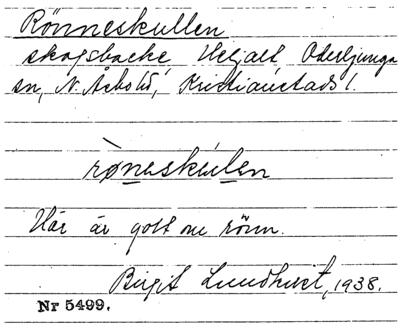 Rönneskullen
skogsbacke Heljalt Oderljunga
sn, N. Åsbohd, Kristianstads l.
rø̀neskúlen
Här är gott om rönn.
Birgit Lundkvist, 1938.
Nr 5499.